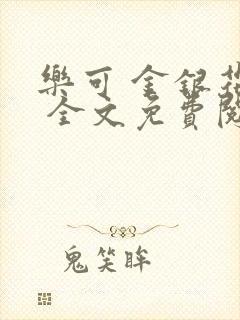 樂可 金銀花
全文免費閱
鬼笑眸